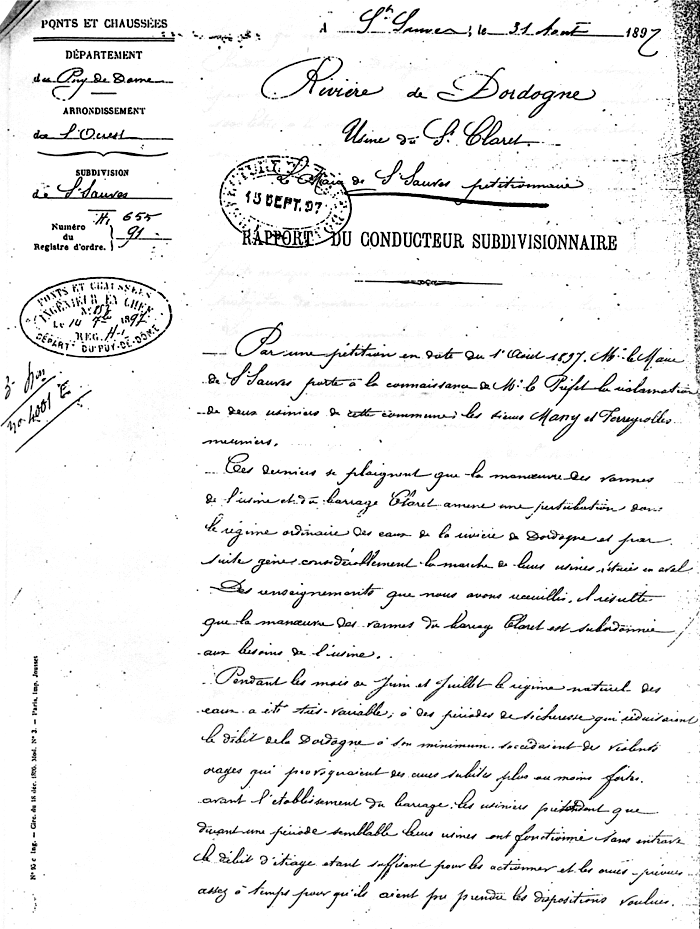 PONTS ET CHAUSSÉES
DÉPARTEMENT
du Puy de Dôme
ARRONDISSEMENT
de l'Ouest
SUBDIVISION
de St Sauves
Hi 655
Numéro
du
Registre d'ordre.
91
PONTS ET CHAUSSÉES
INGÉNIEUR EN CHEF
Le 14 7bre 1897
REG. H-1
DÉPART. DU PUY-DE-DÔME
no 4001 E
N° 10 c Ing. — Circ. du 18 déc. 1890. Mod. N° 3. — Paris, Imp. Jousset
A St Sauves, le 31 Août 1897
Rivière de Dordogne
Usine du St Claret
Le Maire de St Sauves pétitionnaire
15 SEPT. 97
RAPPORT DU CONDUCTEUR SUBDIVISIONNAIRE
Par une pétition en date du 1er Août 1897, Mr le Maire
de St Sauves porte à la connaissance de Mr le Préfet la réclamation
de deux usiniers de cette commune; les sieurs Many et Terreyrolles
meuniers.
Ces derniers se plaignent que la manœuvre des vannes
de l'usine et du barrage Claret amène une perturbation dans
le régime ordinaire des eaux de la rivière de Dordogne et par
suite gêne considérablement la marche de leurs usines, situées en aval
Des renseignements que nous avons recueillis, il résulte
que la manœuvre des vannes du barrage Claret est subordonnée
aux besoins de l'usine.
Pendant les mois de Juin et Juillet le régime naturel des
eaux a été très-variable; à des périodes de sécheresse qui réduisaient
le débit de la Dordogne à son minimum succédaient des violents
orages qui provoquaient des crues subites plus ou moins fortes.
avant l'établissement du barrage les usiniers prétendent que
durant une période semblable leurs usines ont fonctionné sans entrave
le débit d'étiage étant suffisant pour les actionner et les crues prévues
assez à temps pour qu'ils aient pu prendre les dispositions voulues.